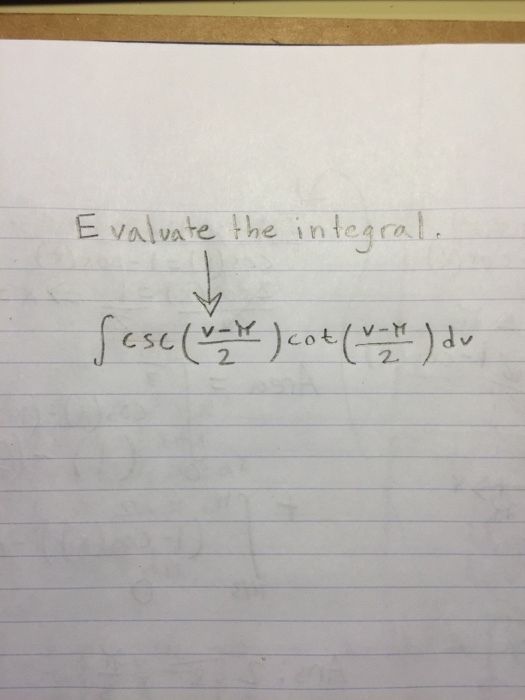 Evaluate the integral.
∫csc(v-π/2)cot(v-π/2)dv